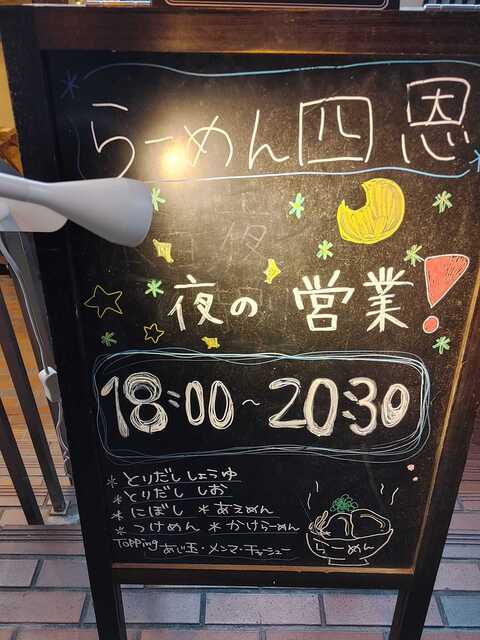 らーめん四恩
夜の営業!
18:00~20:30
* とりだし しょうゆ
* とりだし しお
* にぼし * あえめん
* つけめん * かけらーめん
Topping あじ玉・メンマ・チャーシュー
らーめん